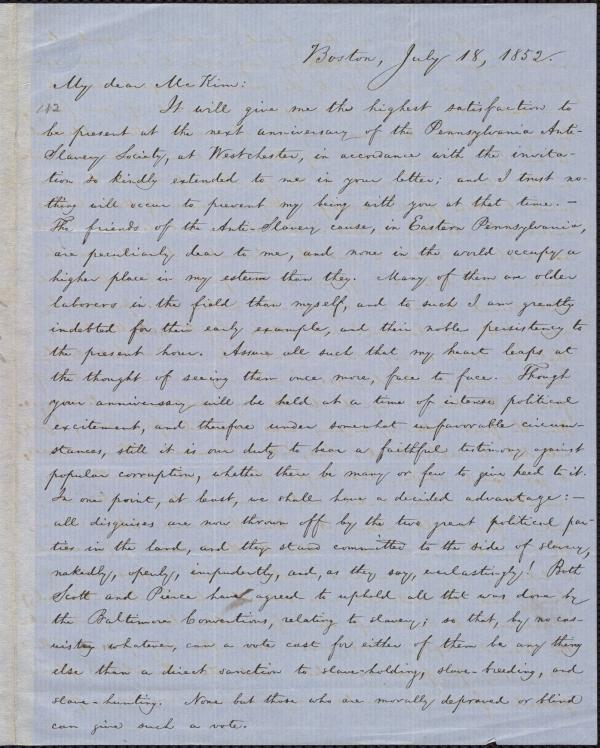 Boston, July 18, 1852.
My dear McKim:
112
It will give me the highest satisfaction to
be present at the next anniversary of the Pennsylvania Anti-
Slavery Society, at Westchester, in accordance with the invita-
tion so kindly extended to me in your letter; and I trust no-
thing will occur to prevent my being with you at that time. –
The friends of the Anti-Slavery cause, in Eastern Pennsylvania,
are peculiarly dear to me, and none in the world occupy a
higher place in my esteem than they. Many of them are older
laborers in the field than myself, and to such I am greatly
indebted for their early example, and their noble persistency to
the present hour. Assure all such that my heart leaps at
the thought of seeing them once more, face to face. Though
your anniversary will be held at a time of intense political
excitement, and therefore under somewhat unfavorable circum-
stances, still it is our duty to bear a faithful testimony against
popular corruption, whether there be many or few to give heed to it.
In one point, at least, we shall have a decided advantage: –
all disguises are now thrown off by the two great political par-
ties in the land, and they stand committed to the side of slavery,
nakedly, openly, impudently, and, as they say, everlastingly! Both
Scott and Pierce have agreed to uphold all that was done by
the Baltimore Conventions, relating to slavery; so that, by no cas-
uistry whatever, can a vote cast for either of them be any thing
else than a direct sanction to slave-holding, slave-breeding, and
slave-hunting. None but those who are morally depraved or blind
can give such a vote.